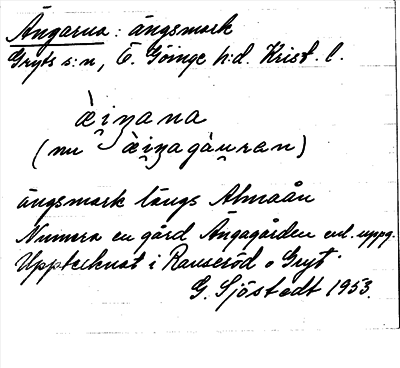 Ängarna: ängsmark
Gryts s:n, Ö. Göinge h:d. Krist. l.
ὰi̯ŋana
(nu ὰi̯ŋagὰu̯ran)
ängsmark längs Almaån
Numera en gård Ängagården enl. uppg.
Upptecknat i Ranseröd o Gryt
G. Sjöstedt 1953.